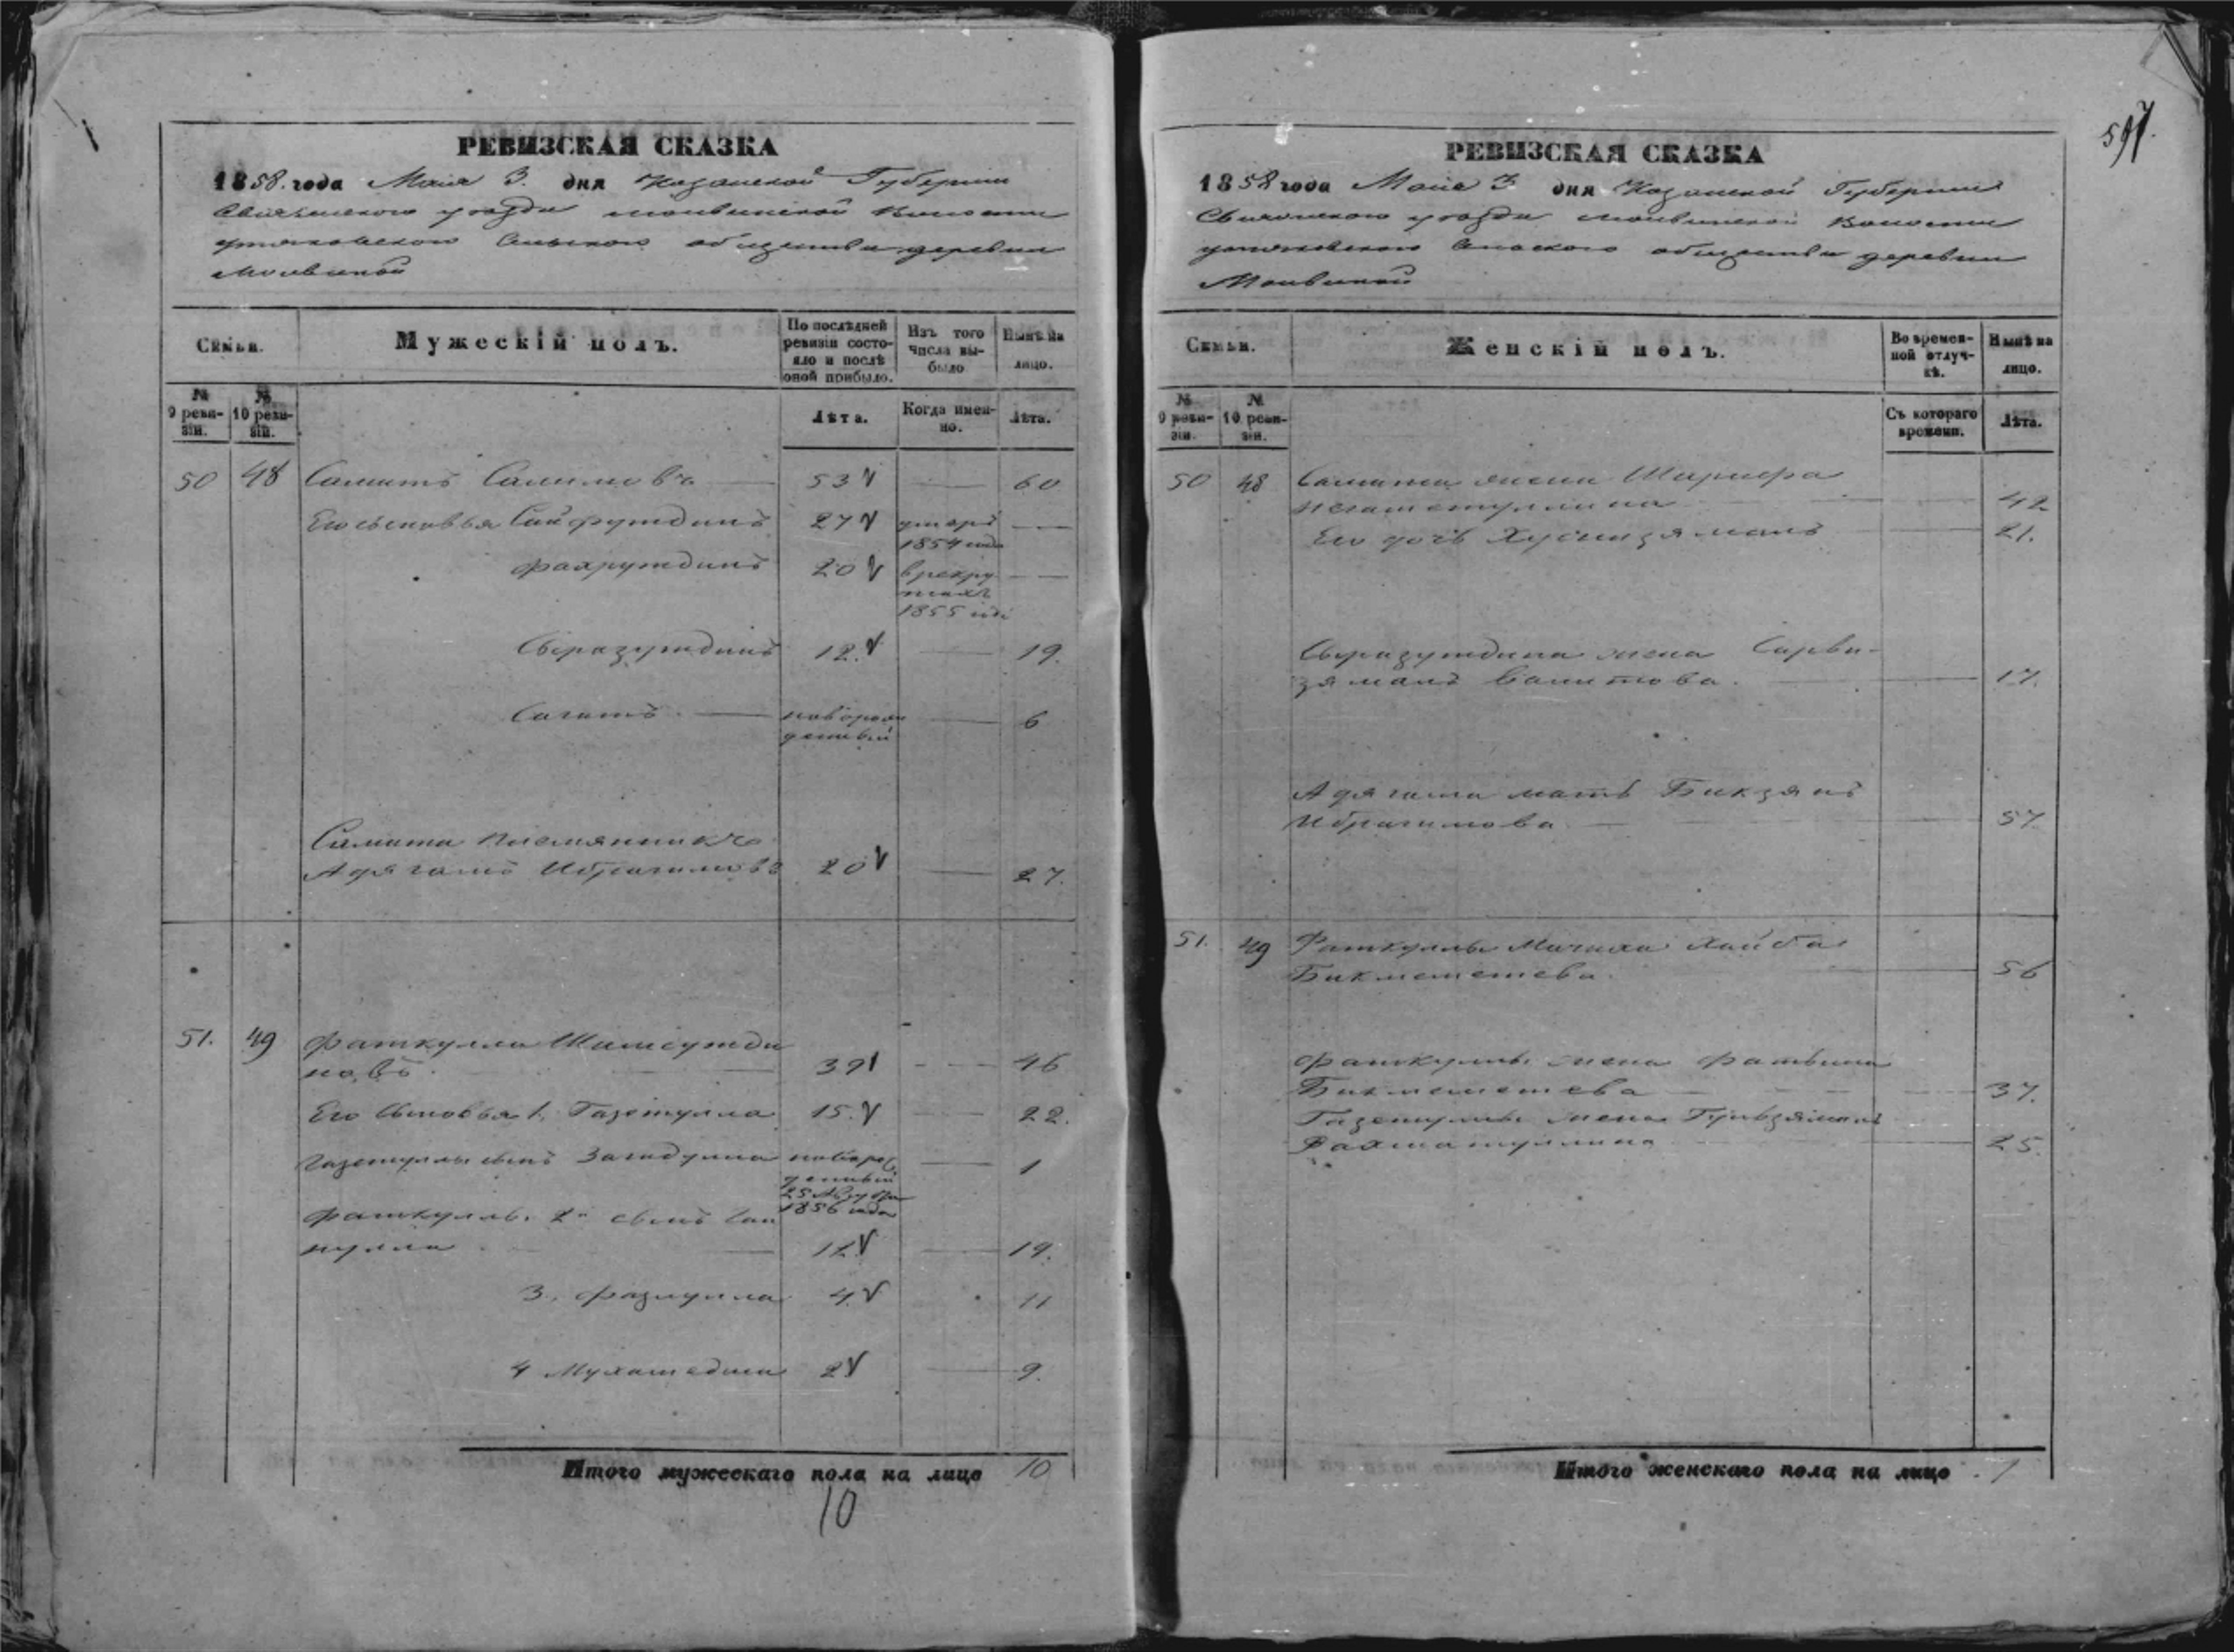 РЕВИЗСКАЯ СКАЗКА
1858. года Маія 3. дня Казанской Губерніи
Свіяжского уѣзда Молвинской Волости
Сельского общества деревни
Молвиной
Семьи.
Мужескій полъ.
По послѣдней ревизіи состояло и послѣ оной прибыло.
Изъ того числа выбыло
Нынѣ на лицо.
№ 9 ревизіи.
№ 10 ревизіи.
Лѣта.
Когда именно.
Лѣта.
50 48 Самитъ Салимовъ 53 60
Его сыновья Сайфутдинъ 27 умеръ
1854 года
Фахрутдинъ 20 в рекру
тахъ
1855 года
Сыразутдинъ 12. 19.
Сагитъ новорож 6
денный
Самита племянникъ
Адягамъ Ибрагимовъ 20 27.
51. 49 Фаткулла Шамсутди
новъ 39 46
Его сыновья 1. Газетулла 15. 22.
Газетуллы сынъ Загидулла новорож 1
денный
25
1856 года
Фаткуллы 2й сынъ
нулла 12 19.
3. Фазлулла 4. 11
4 Мухаметдин 2 9.
Итого мужескаго пола на лицо 10
10
597.
РЕВИЗСКАЯ СКАЗКА
1858 года Маія 3 дня Казанской Губерніи
Свіяжского уѣзда Молвинской Волости
Сельского общества деревни
Молвиной
Семьи.
Женскій полъ.
Во временной отлучкѣ.
Нынѣ на лицо.
№ 9 ревизіи.
№ 10 ревизіи.
Съ котораго времени.
Лѣта.
50 48 Самита жена Шарифа
Негаметуллина 42
Его дочь Хуснизямалъ 21.
Сыразутдина жена Сарви-
зямалъ Валитова. 17.
Адягама мать Бикзянъ
Ибрагимова 57.
51. 49 Фаткуллы Мачиха Хайба
Бикмеметева. 56
Фаткуллы жена Фатыма
Бикмеметева 37.
Газетуллы жена Гульзямалъ
Рахматуллина 25.
Итого женскаго пола на лицо